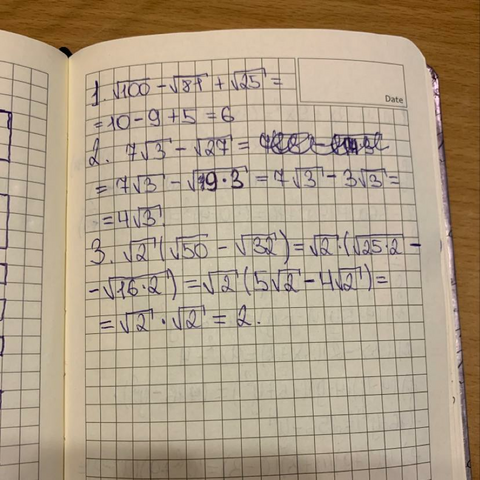 Date
1. √100 - √81 + √25 =
= 10 - 9 + 5 = 6
2. 7√3 - √27 =
= 7√3 - √9·3 = 7√3 - 3√3 =
= 4√3
3. √2 (√50 - √32) = √2 · (√25·2 -
- √16·2) = √2 (5√2 - 4√2) =
= √2 · √2 = 2.